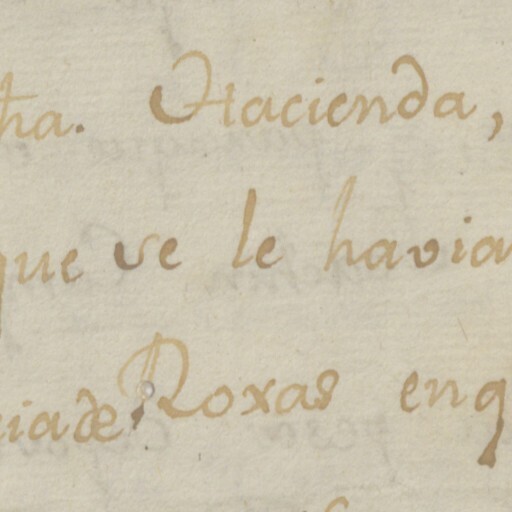 ha. Hacienda,
que se le havian
iade Roxas enq